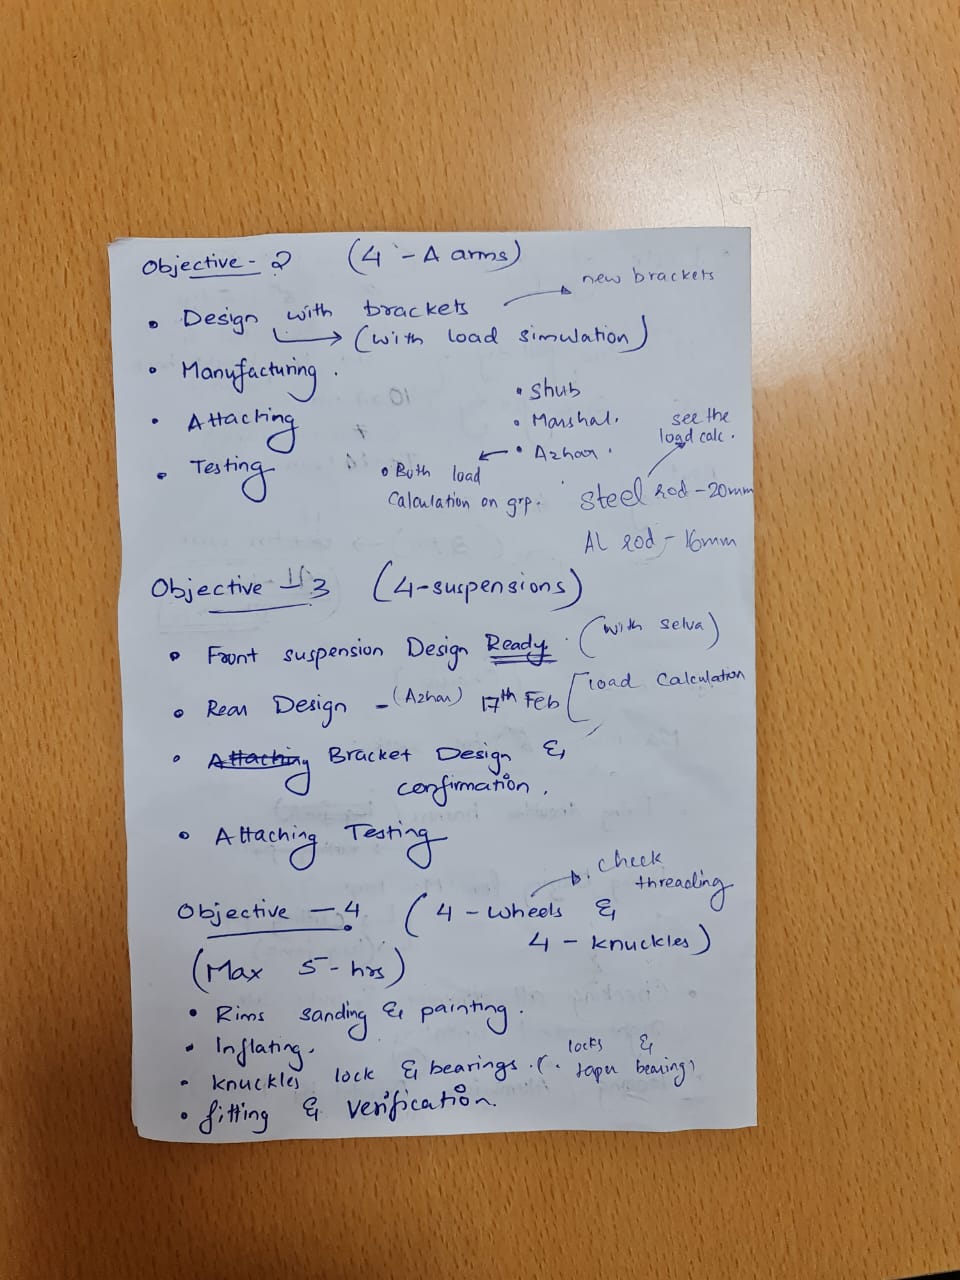 Objective - 2 (4 - A arms)
new brackets
• Design with brackets
(with load simulation)
• Manufacturing.
• Shub
• Attaching
• Marshal.
see the
load calc.
• Azhar.
• Testing
• Both load
Calculation on grp.
steel rod - 20mm
Al rod - 16mm
Objective 3 (4-suspensions)
• Front suspension Design Ready. (with Selva)
• Rear Design - (Azhar) 17th Feb [load Calculation
• Attaching Bracket Design &
confirmation.
• Attaching Testing
check
threading
Objective - 4 (4 - wheels &
4 - knuckles)
(Max 5-hrs)
• Rims sanding & painting.
• Inflating.
• knuckles lock & bearings. (. locks &
taper bearing)
• fitting & verification.